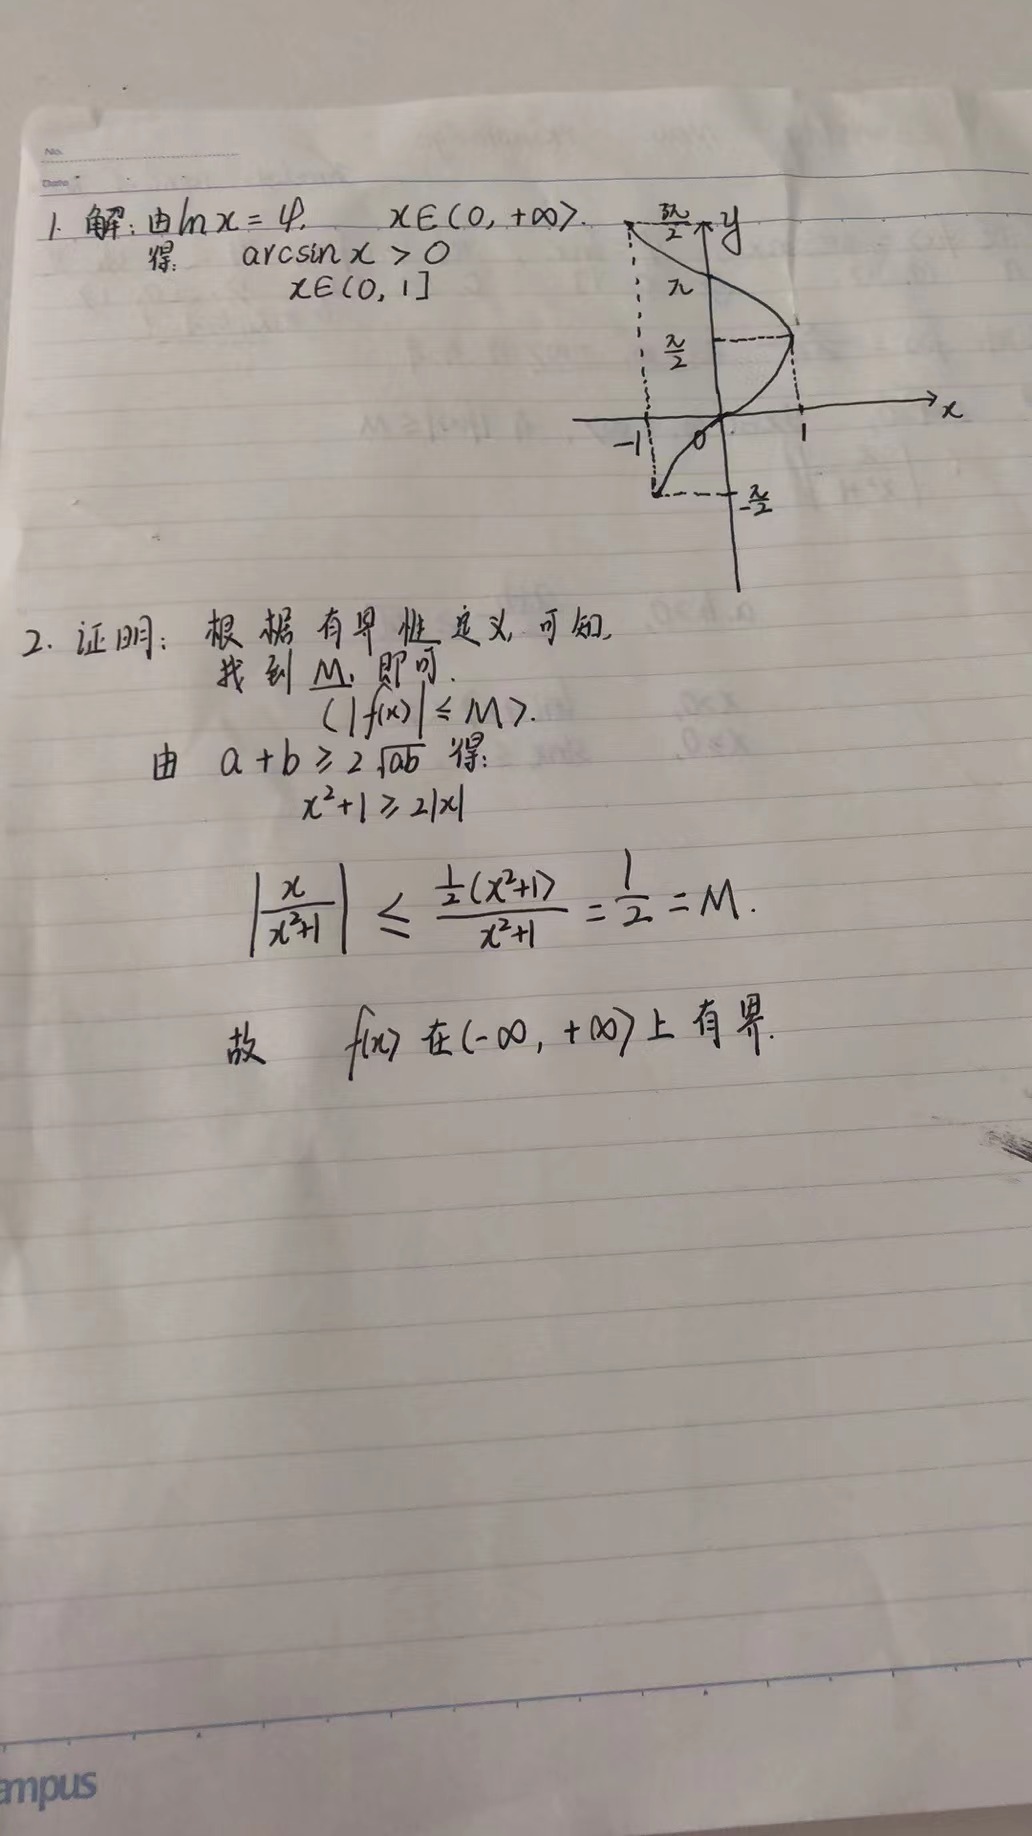 No.
Date
1. 解: 由 ln x = 4. x∈(0, +∞).
得: arcsin x > 0
x∈(0, 1]
y
π
π/2
x
-1
0
1
-π/2
2. 证明: 根据有界性定义, 可知,
找到 M, 即可.
(|f(x)| ≤ M).
由 a+b ≥ 2√ab 得:
x²+1 ≥ 2|x|
|x/(x²+1)| ≤ (½(x²+1))/(x²+1) = 1/2 = M.
故 f(x) 在(-∞, +∞)上有界.
ampus